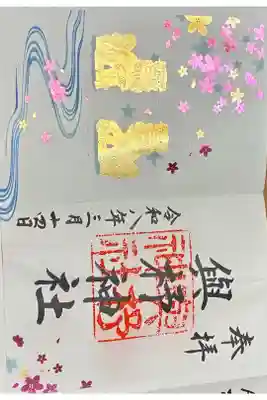 奉拝
與杼神社
令和八年三月廿四日